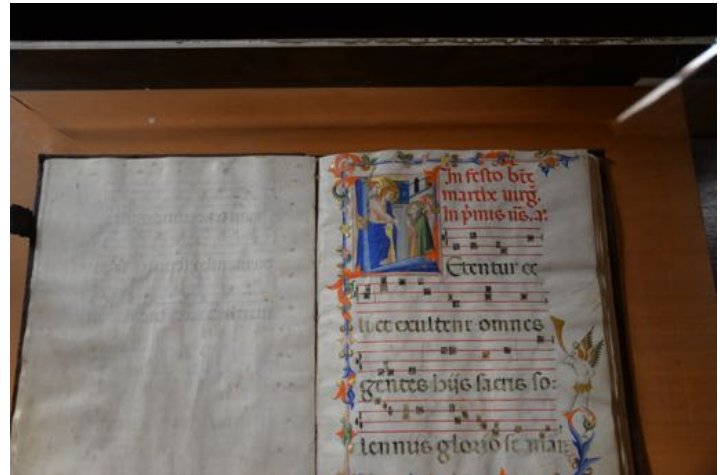 In festo bte
marthe uirg.
In pmis uis. a:
Etentur ce
li et exultent omnes
gentes hijs sacris so:
lennus glorio se mar: